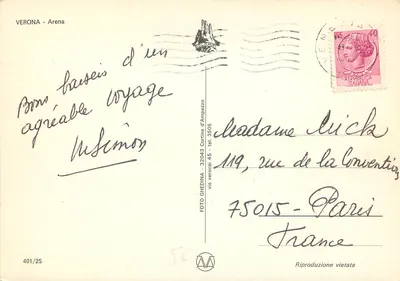 VERONA - Arena
Bons baisers d'un
agréable voyage
MSimon
FOTO GHEDINA - 32043 Cortina d'Ampezzo
via verona 45 - tel. 3505
Madame Mick
119, rue de la Convention
75015 - Paris
France
401/25
Riproduzione vietata